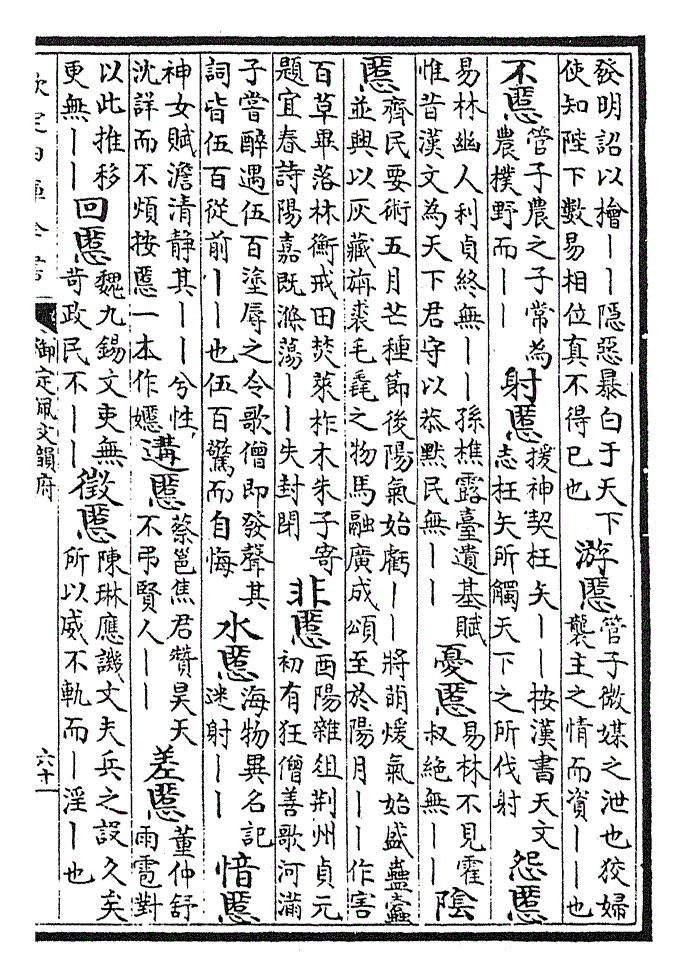 發明詔以檜丨丨隱惡暴白于天下
使知陛下數易相位真不得已也
游慝
管子微媒之泄也狡婦
襲主之情而資丨丨也
不慝
管子農之子常為
農樸野而丨丨
射慝
援神契枉矢丨丨按漢書天文
志枉矢所觸天下之所伐射
怨慝
易林幽人利貞終無丨丨孫樵露臺遺基賦
惟昔漢文為天下君守以恭默民無丨丨
憂慝
易林不見霍
叔絶無丨丨
陰
慝
齊民要術五月芒種節後陽氣始虧丨丨將萌煖氣始盛蠱蠹
並興以灰藏旃裘毛毳之物馬融廣成頌至於陽月丨丨作害
百草畢落林衡戒田焚萊柞木朱子寄
題宜春詩陽嘉既滌蕩丨丨失封閉
非慝
酉陽雜俎荆州貞元
初有狂僧善歌河滿
子嘗醉遇伍百塗辱之令歌僧即發聲其
詞皆伍百從前丨丨也伍百驚而自悔
水慝
海物異名記
迷射丨丨
愔慝
神女賦澹清静其丨丨兮性
沈詳而不煩按慝一本作嫕
遘慝
蔡邕焦君贊昊天
不弔賢人丨丨
差慝
董仲舒
雨雹對
以此推移
更無丨丨
回慝
魏九錫文吏無
苛政民不丨丨
徵慝
陳琳應譏文夫兵之設久矣
所以威不軌而丨淫丨也
欽定四庫全書
御定佩文韻府
六十一